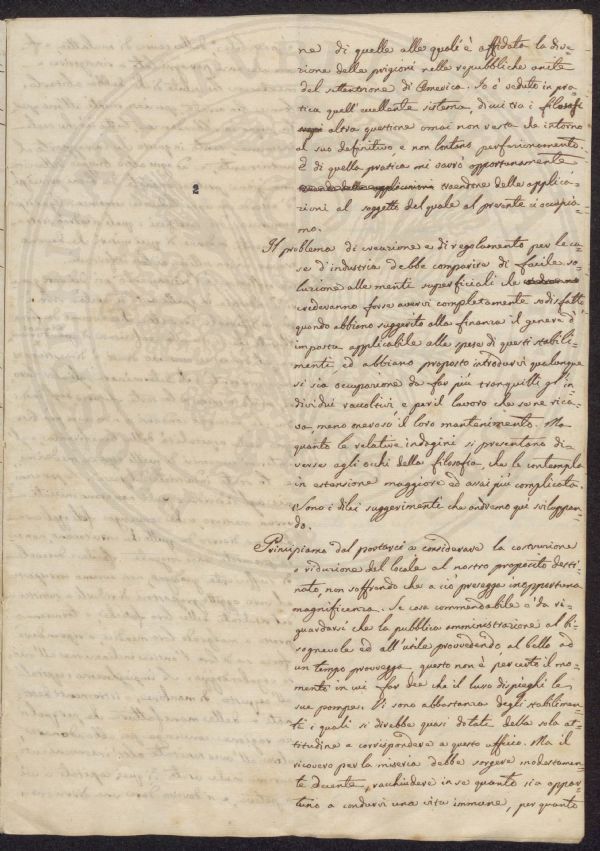 ne di quelle alle quali è affidata la dire-
zione delle prigioni nelle repubbliche unite
del settentrione di America. Io ò veduto in pra-
tica quell'eccellente sistema, di cui tra i filosofi
altra questione omai non resta che intorno
al suo definitivo e non lontano perfezionamento.
E di quella pratica mi savrò opportunamente
traendone delle applica-
zioni al soggetto del quale al presente ci occupia-
mo.
2
Il problema di creazione e di regolamento per le ca-
se d'industria debbe comparire di facile so-
luzione alle menti superficiali che
crederanno forse avervi completamente sodisfatto,
quando abbiano suggerito alla finanza il genere d'
imposta applicabile alle spese di questi stabili-
menti, ed abbiano proposto introdurvi qualunque
si sia occupazione da far più tranquilli gl'in-
dividui raccoltivi e per il lavoro che se ne rica-
va, meno oneroso il loro mantenimento. Ma
quanto le relative indagini si presentano di-
verse agli occhi della filosofia, che le contempla
in estensione maggiore ed assai più complicata.
Sono i di lei suggerimenti che andremo qui sviluppan-
do.
Principiamo dal portarci a considerare la costruzione
o riduzione del locale al nostro proposito desti-
nato, non soffrendo che a ciò presegga inopportuna
magnificenza. Se cosa commendabile è da ri-
guardarsi che la pubblica amministrazione al bi-
sognevole ed all'utile provvedendo, al bello ad
un tempo provvegga questo non è per certo il mo-
mento in cui far dee che il lusso dispieghi le
sue pompe. Vi sono abbastanza degli stabilimen-
ti i quali si direbbe quasi dotati della sola at-
titudine a corrispondere a questo ufficio. Ma il
ricovero per la miseria debbe sorgere modestamen-
te decente, racchiudere in se quanto sia oppor-
tuno a condurvi una vita immune, per quanto